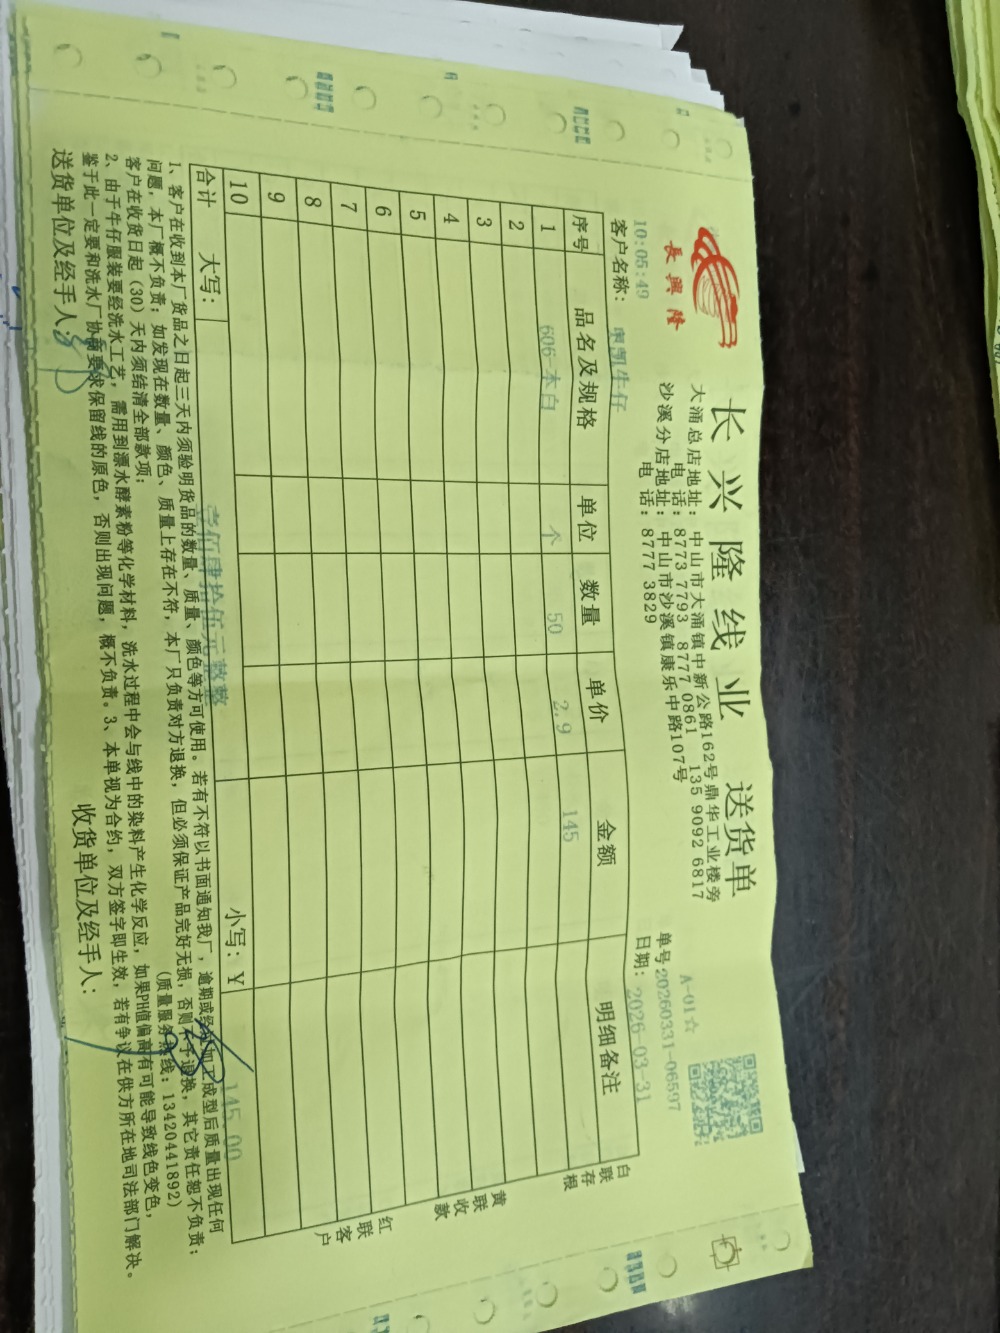 長興隆
长兴隆线业 送货单
大涌总店地址：中山市大涌镇中新公路162号鼎华工业楼旁
电话：8773 7793 8777 0861 135 9092 6817
沙溪分店地址：中山市沙溪镇康乐中路107号
电话：8777 3829
A-01☆
单号20260331-06597
10:05:49
日期：2026-03-31
客户名称： 牛仔
序号 品名及规格 单位 数量 单价 金额 明细备注
1 606-本白 个 50 2.9 145
2
3
4
5
6
7
8
9
10
合计 大写： 壹佰肆拾伍元整 小写：Y 145.00
白联存根
黄联收款
红联客户
1、客户在收到本厂货品之日起三天内须验明货品的数量、质量、颜色等方可使用。若有不符以书面通知我厂，逾期或经 加工成型后质量出现任何
问题，本厂概不负责；如发现在数量、颜色、质量上存在不符，本厂只负责对方退换，但必须保证产品完好无损，否则不予退换，其它责任恕不负责；
客户在收货日起（30）天内须结清全部款项； （质量服务热线：13420441892）
2、由于牛仔服装要经洗水工艺，需用到漂水酵素粉等化学材料，洗水过程中会与线中的染料产生化学反应，如果PH值偏高有可能导致线色变色，
鉴于此一定要和洗水厂协商要求保留线的原色，否则出现问题，概不负责。3、本单视为合约，双方签字即生效，若有争议在供方所在地司法部门解决。
送货单位及经手人： 收货单位及经手人：